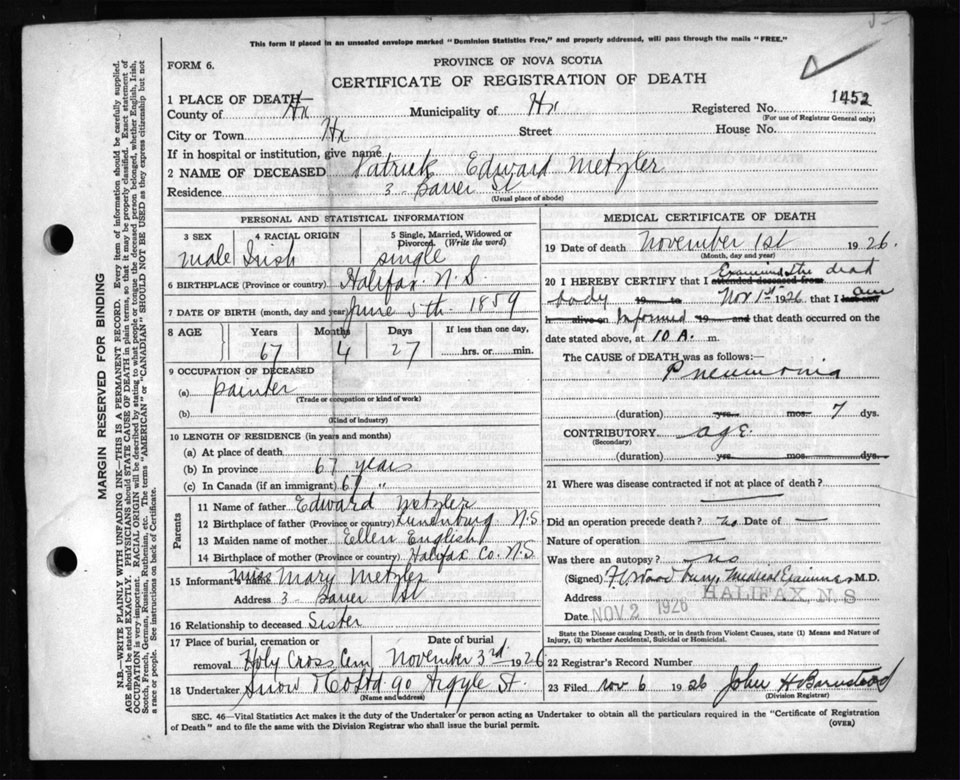 This form if placed in an unsealed envelope marked "Dominion Statistics Free," and properly addressed, will pass through the mails "FREE."
FORM 6.
PROVINCE OF NOVA SCOTIA
CERTIFICATE OF REGISTRATION OF DEATH
1 PLACE OF DEATH—
County of Hx Municipality of Hx Registered No. 1452
(For use of Registrar General only)
City or Town Hx Street House No.
If in hospital or institution, give name
2 NAME OF DECEASED Patrick Edward Metzler
Residence 3 Bauer St
(Usual place of abode)
PERSONAL AND STATISTICAL INFORMATION
3 SEX 4 RACIAL ORIGIN 5 Single, Married, Widowed or Divorced. (Write the word)
male Irish single
6 BIRTHPLACE (Province or country) Halifax N.S
7 DATE OF BIRTH (month, day and year) June 5th. 1859
8 AGE Years Months Days If less than one day,
67 4 27 hrs. or min.
9 OCCUPATION OF DECEASED
(a) painter
(Trade or occupation or kind of work)
(b)
(Kind of industry)
10 LENGTH OF RESIDENCE (in years and months)
(a) At place of death
(b) In province 67 years
(c) In Canada (if an immigrant) 67 "
Parents
11 Name of father Edward Metzler
12 Birthplace of father (Province or country) Lunenburg N.S
13 Maiden name of mother Ellen English
14 Birthplace of mother (Province or country) Halifax Co. N.S
15 Informant's name Miss Mary Metzler
Address 3 Bauer St
16 Relationship to deceased Sister
17 Place of burial, cremation or removal Date of burial
Holy Cross Cem November 3rd 1926
18 Undertaker Snow & Co Ltd 90 Argyle St.
(Name and address)
MEDICAL CERTIFICATE OF DEATH
19 Date of death November 1st 1926.
(Month, day and year)
20 I HEREBY CERTIFY that I attended deceased from Examined the dead
body 19 to Nov 1st 1926 that I last saw am
h alive on Informed 19 and that death occurred on the
date stated above, at 10 A. m.
The CAUSE of DEATH was as follows:—
Pneumonia
(duration) yrs. mos. 7 dys.
CONTRIBUTORY age
(Secondary)
(duration) yrs. mos. dys.
21 Where was disease contracted if not at place of death?
Did an operation precede death? no Date of —
Nature of operation —
Was there an autopsy? no
(Signed) F. C. Woodbury, Medical Examiner M.D.
Address HALIFAX, N.S
Date NOV 2 1926
State the Disease causing Death, or in death from Violent Causes, state (1) Means and Nature of Injury, (2) whether Accidental, Suicidal or Homicidal.
22 Registrar's Record Number
23 Filed Nov 6 1926 John H Barnstead
(Division Registrar)
SEC. 46—Vital Statistics Act makes it the duty of the Undertaker or person acting as Undertaker to obtain all the particulars required in the "Certificate of Registration
of Death" and to file the same with the Division Registrar who shall issue the burial permit.
(OVER)
MARGIN RESERVED FOR BINDING
N.B.—WRITE PLAINLY WITH UNFADING INK—THIS IS A PERMANENT RECORD. Every item of information should be carefully supplied.
AGE should be stated EXACTLY. PHYSICIANS should STATE CAUSE OF DEATH in plain terms, so that it may be properly classified. Exact statement of
OCCUPATION is very important. RACIAL ORIGIN will be described by stating to what people or tongue the deceased person belonged, whether English, Irish,
Scotch, French, German, Russian, Ruthenian, etc. The terms "AMERICAN" or "CANADIAN" SHOULD NOT BE USED as they express citizenship but not
a race or people. See instructions on back of Certificate.